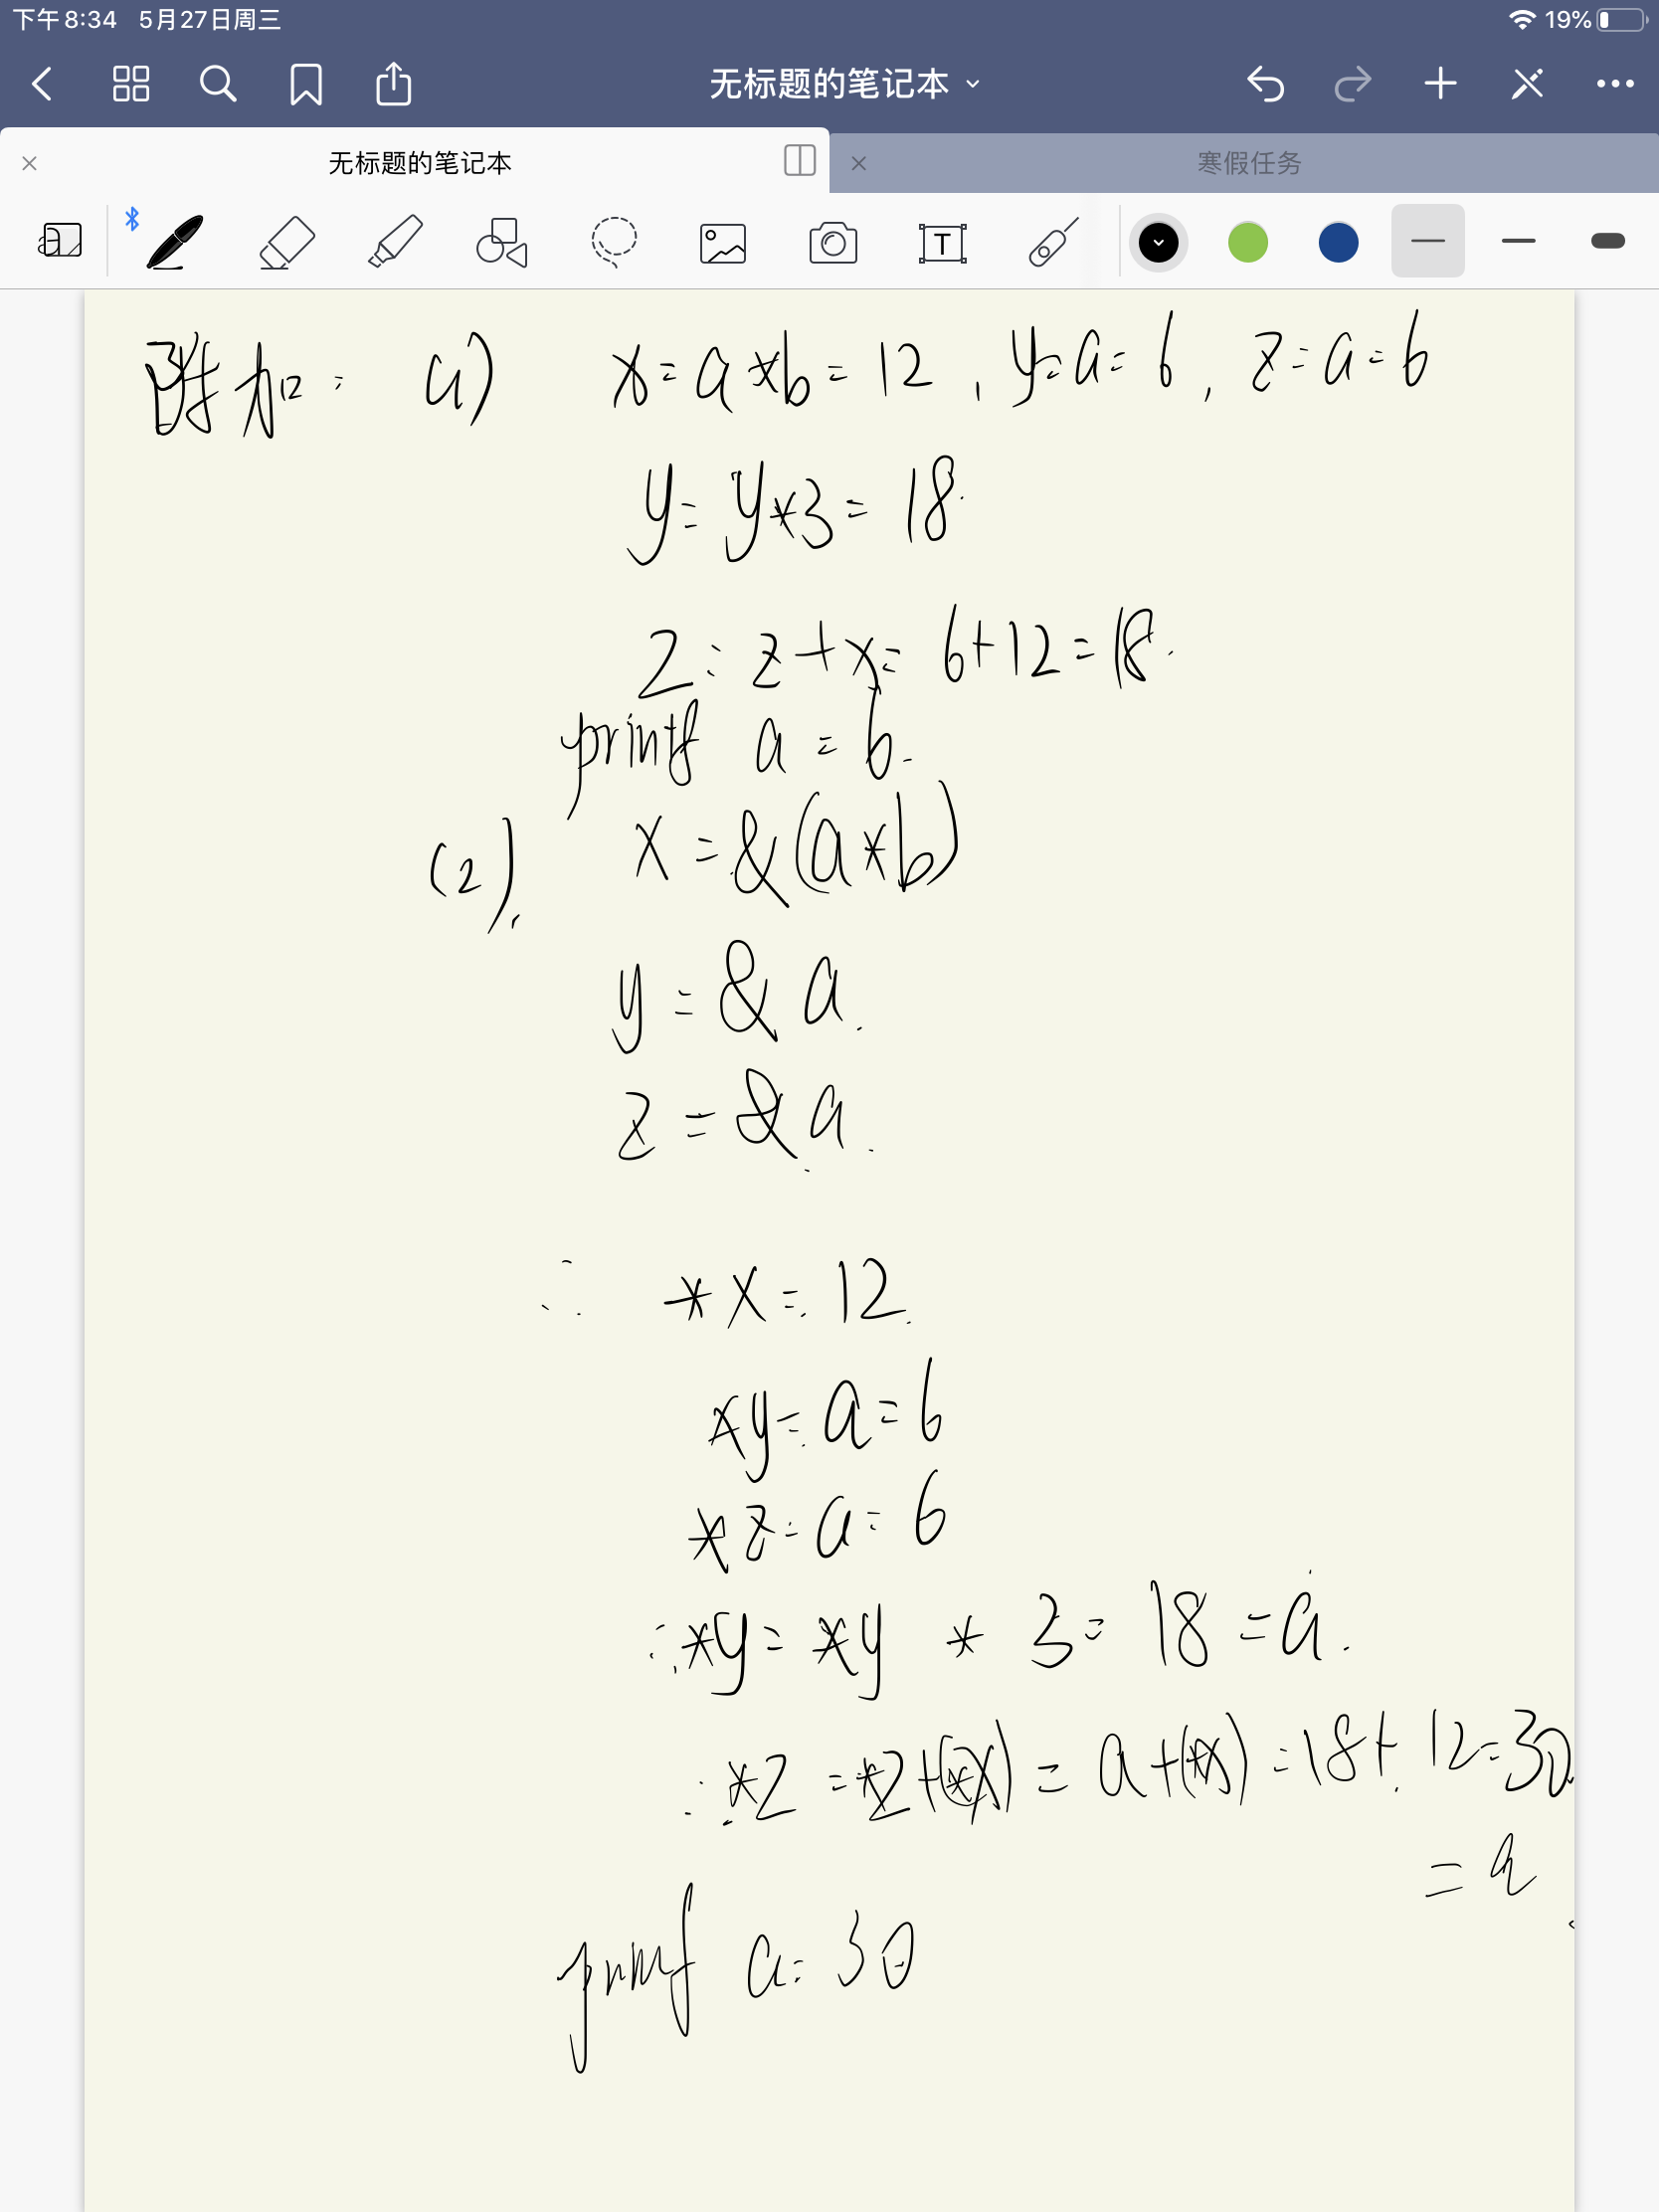 下午8:34 5月27日周三 19%
无标题的笔记本
无标题的笔记本 寒假任务
附加: a) x=a*b=12, y=a=6, z=a=6
y=y*3=18.
z=z+x=6+12=18.
printf a=6.
(2). x=&(a*b)
y=&a.
z=&a.
∴ *x=12.
*y=a=6
*z=a=6
∴*y=*y*3=18=a.
∴*z=*z+(*x)=a+(*x)=18+12=30
=a
printf a=30